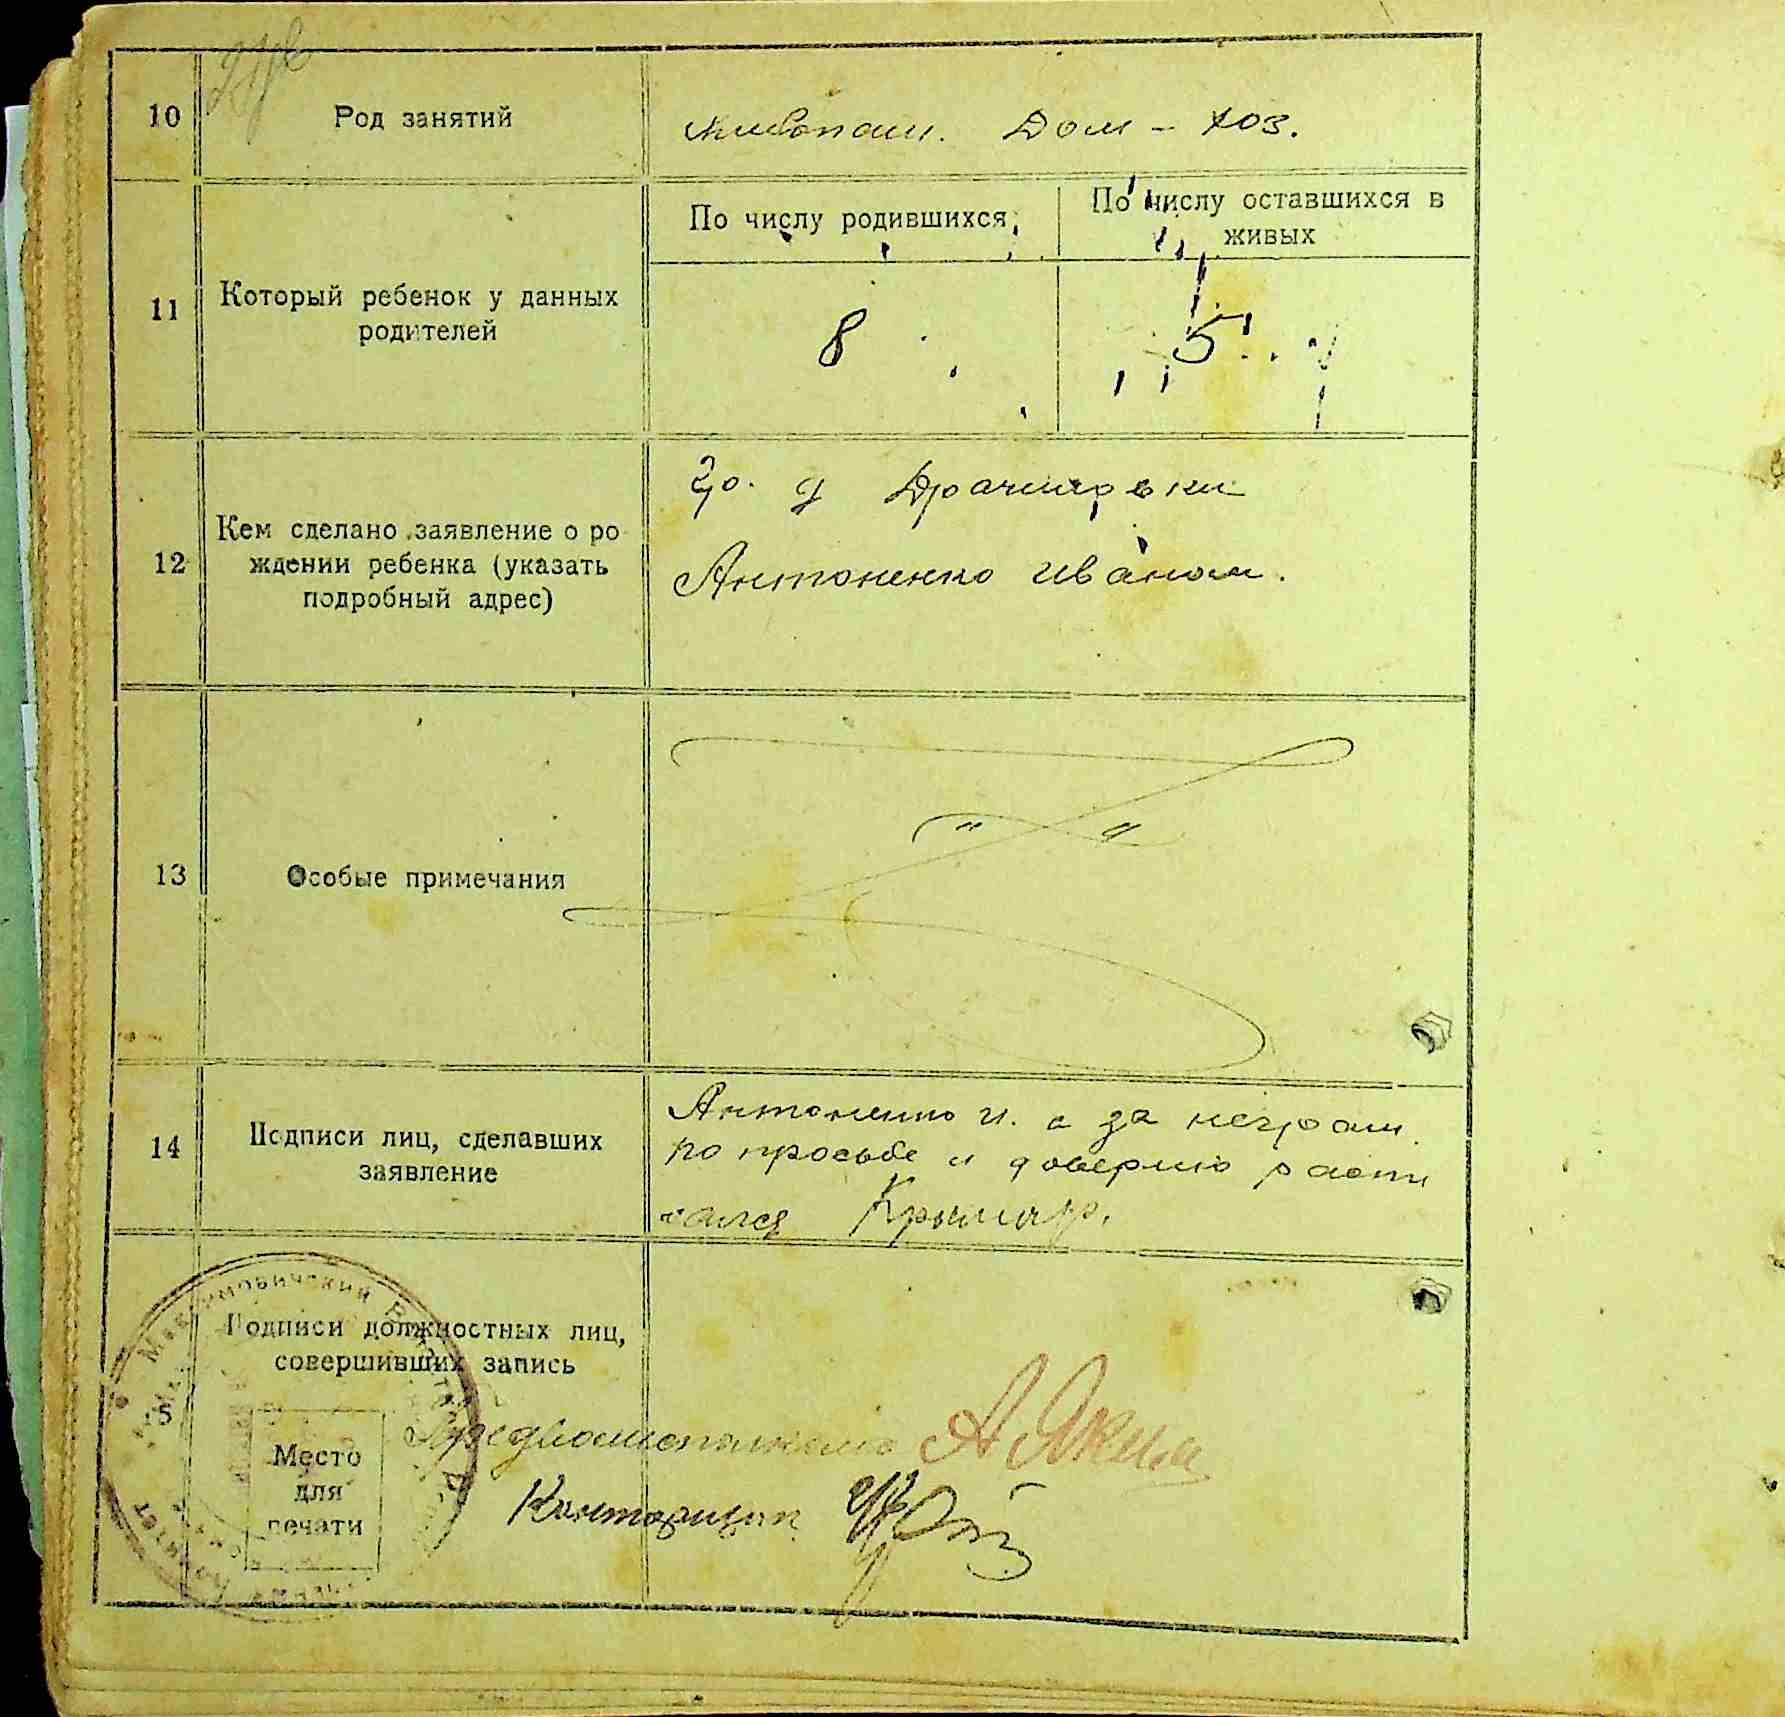 10
Род занятий
Дом-хоз.
11
Который ребенок у данных
родителей
По числу родившихся
По числу оставшихся в
живых
8
5
12
Кем сделано заявление о ро
ждении ребенка (указать
подробный адрес)
гр. д
Антоненко Иваном.
13
Особые примечания
14
Подписи лиц, сделавших
заявление
Антоненко И. а за неграм.
по просьбе и доверию распи
сался
15
Подписи должностных лиц,
совершивших запись
Место
для
печати
Предволисполкома А Яким
Конторщик